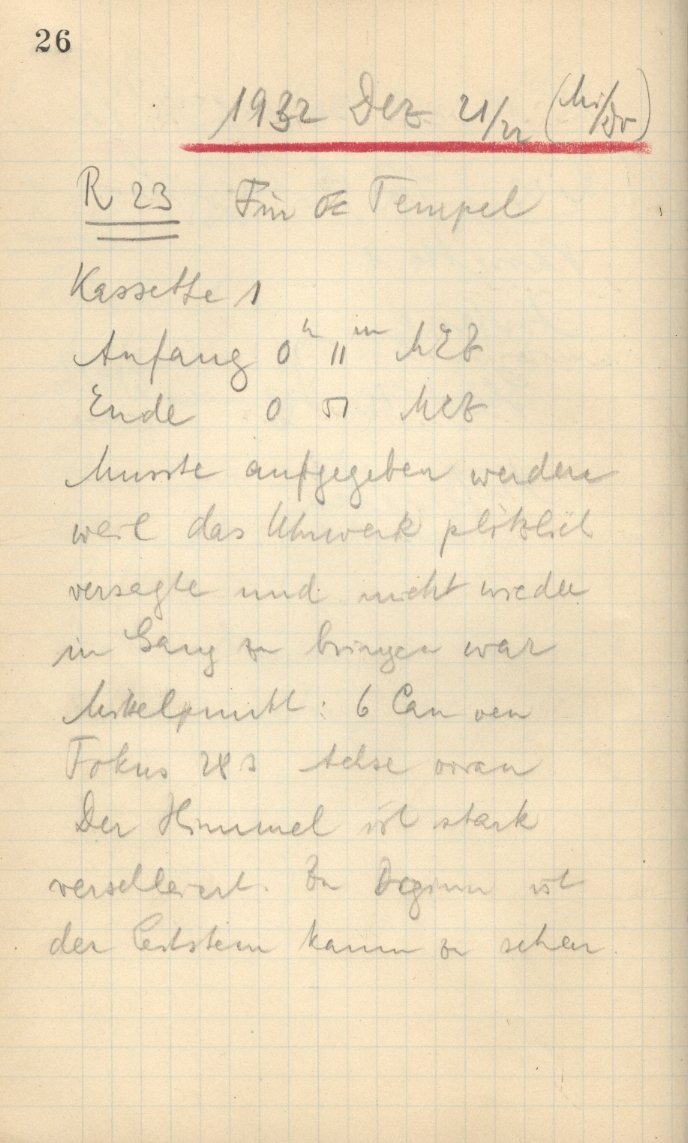 26
1932 Dez 21/22 (Mi/Do)
R 23 Für Tempel
Kassette 1
Anfang 0 h 11 m MEZ
Ende 0 51 MEZ
Musste aufgegeben werden
weil das Uhrwerk plötzlich
versagte und nicht wieder
in Gang zu bringen war
Mittelpunkt: 6 Can ven
Fokus 283 Achse voran
Der Himmel ist stark
verschleiert. Zu Beginn ist
der Leitstern kaum zu sehen.